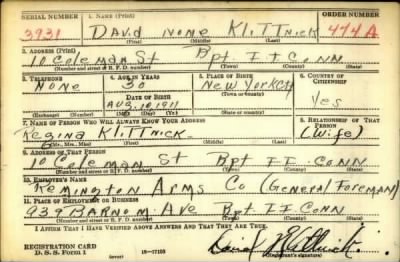 SERIAL NUMBER 1. NAME (Print) ORDER NUMBER
3931 DAVID NONE KLITTNICK 474A
(First) (Middle) (Last)
2. ADDRESS (Print)
10 Coleman St Bpt FF CONN
(Number and street or R. F. D. number) (Town) (County) (State)
3. TELEPHONE 4. AGE IN YEARS 5. PLACE OF BIRTH 6. COUNTRY OF CITIZENSHIP
NONE 30 New York City
DATE OF BIRTH
AUG. 10 1911 Yes
(Exchange) (Number) (Mo.) (Day) (Yr.) (Town or county) (State or country)
7. NAME OF PERSON WHO WILL ALWAYS KNOW YOUR ADDRESS 8. RELATIONSHIP OF THAT PERSON
Regina KLITTNICK (Wife)
(Mr., Mrs., Miss) (First) (Middle) (Last)
9. ADDRESS OF THAT PERSON
10 Coleman St Bpt FF CONN
(Number and street or R. F. D. number) (Town) (County) (State)
10. EMPLOYER'S NAME
Remington Arms Co (General Foreman)
11. PLACE OF EMPLOYMENT OR BUSINESS
939 BARNUM Ave Bpt FF CONN
(Number and street or R. F. D. number) (Town) (County) (State)
I AFFIRM THAT I HAVE VERIFIED ABOVE ANSWERS AND THAT THEY ARE TRUE.
REGISTRATION CARD
D. S. S. Form 1 (over) 16—17105 David Klittnick
(Registrant's signature)